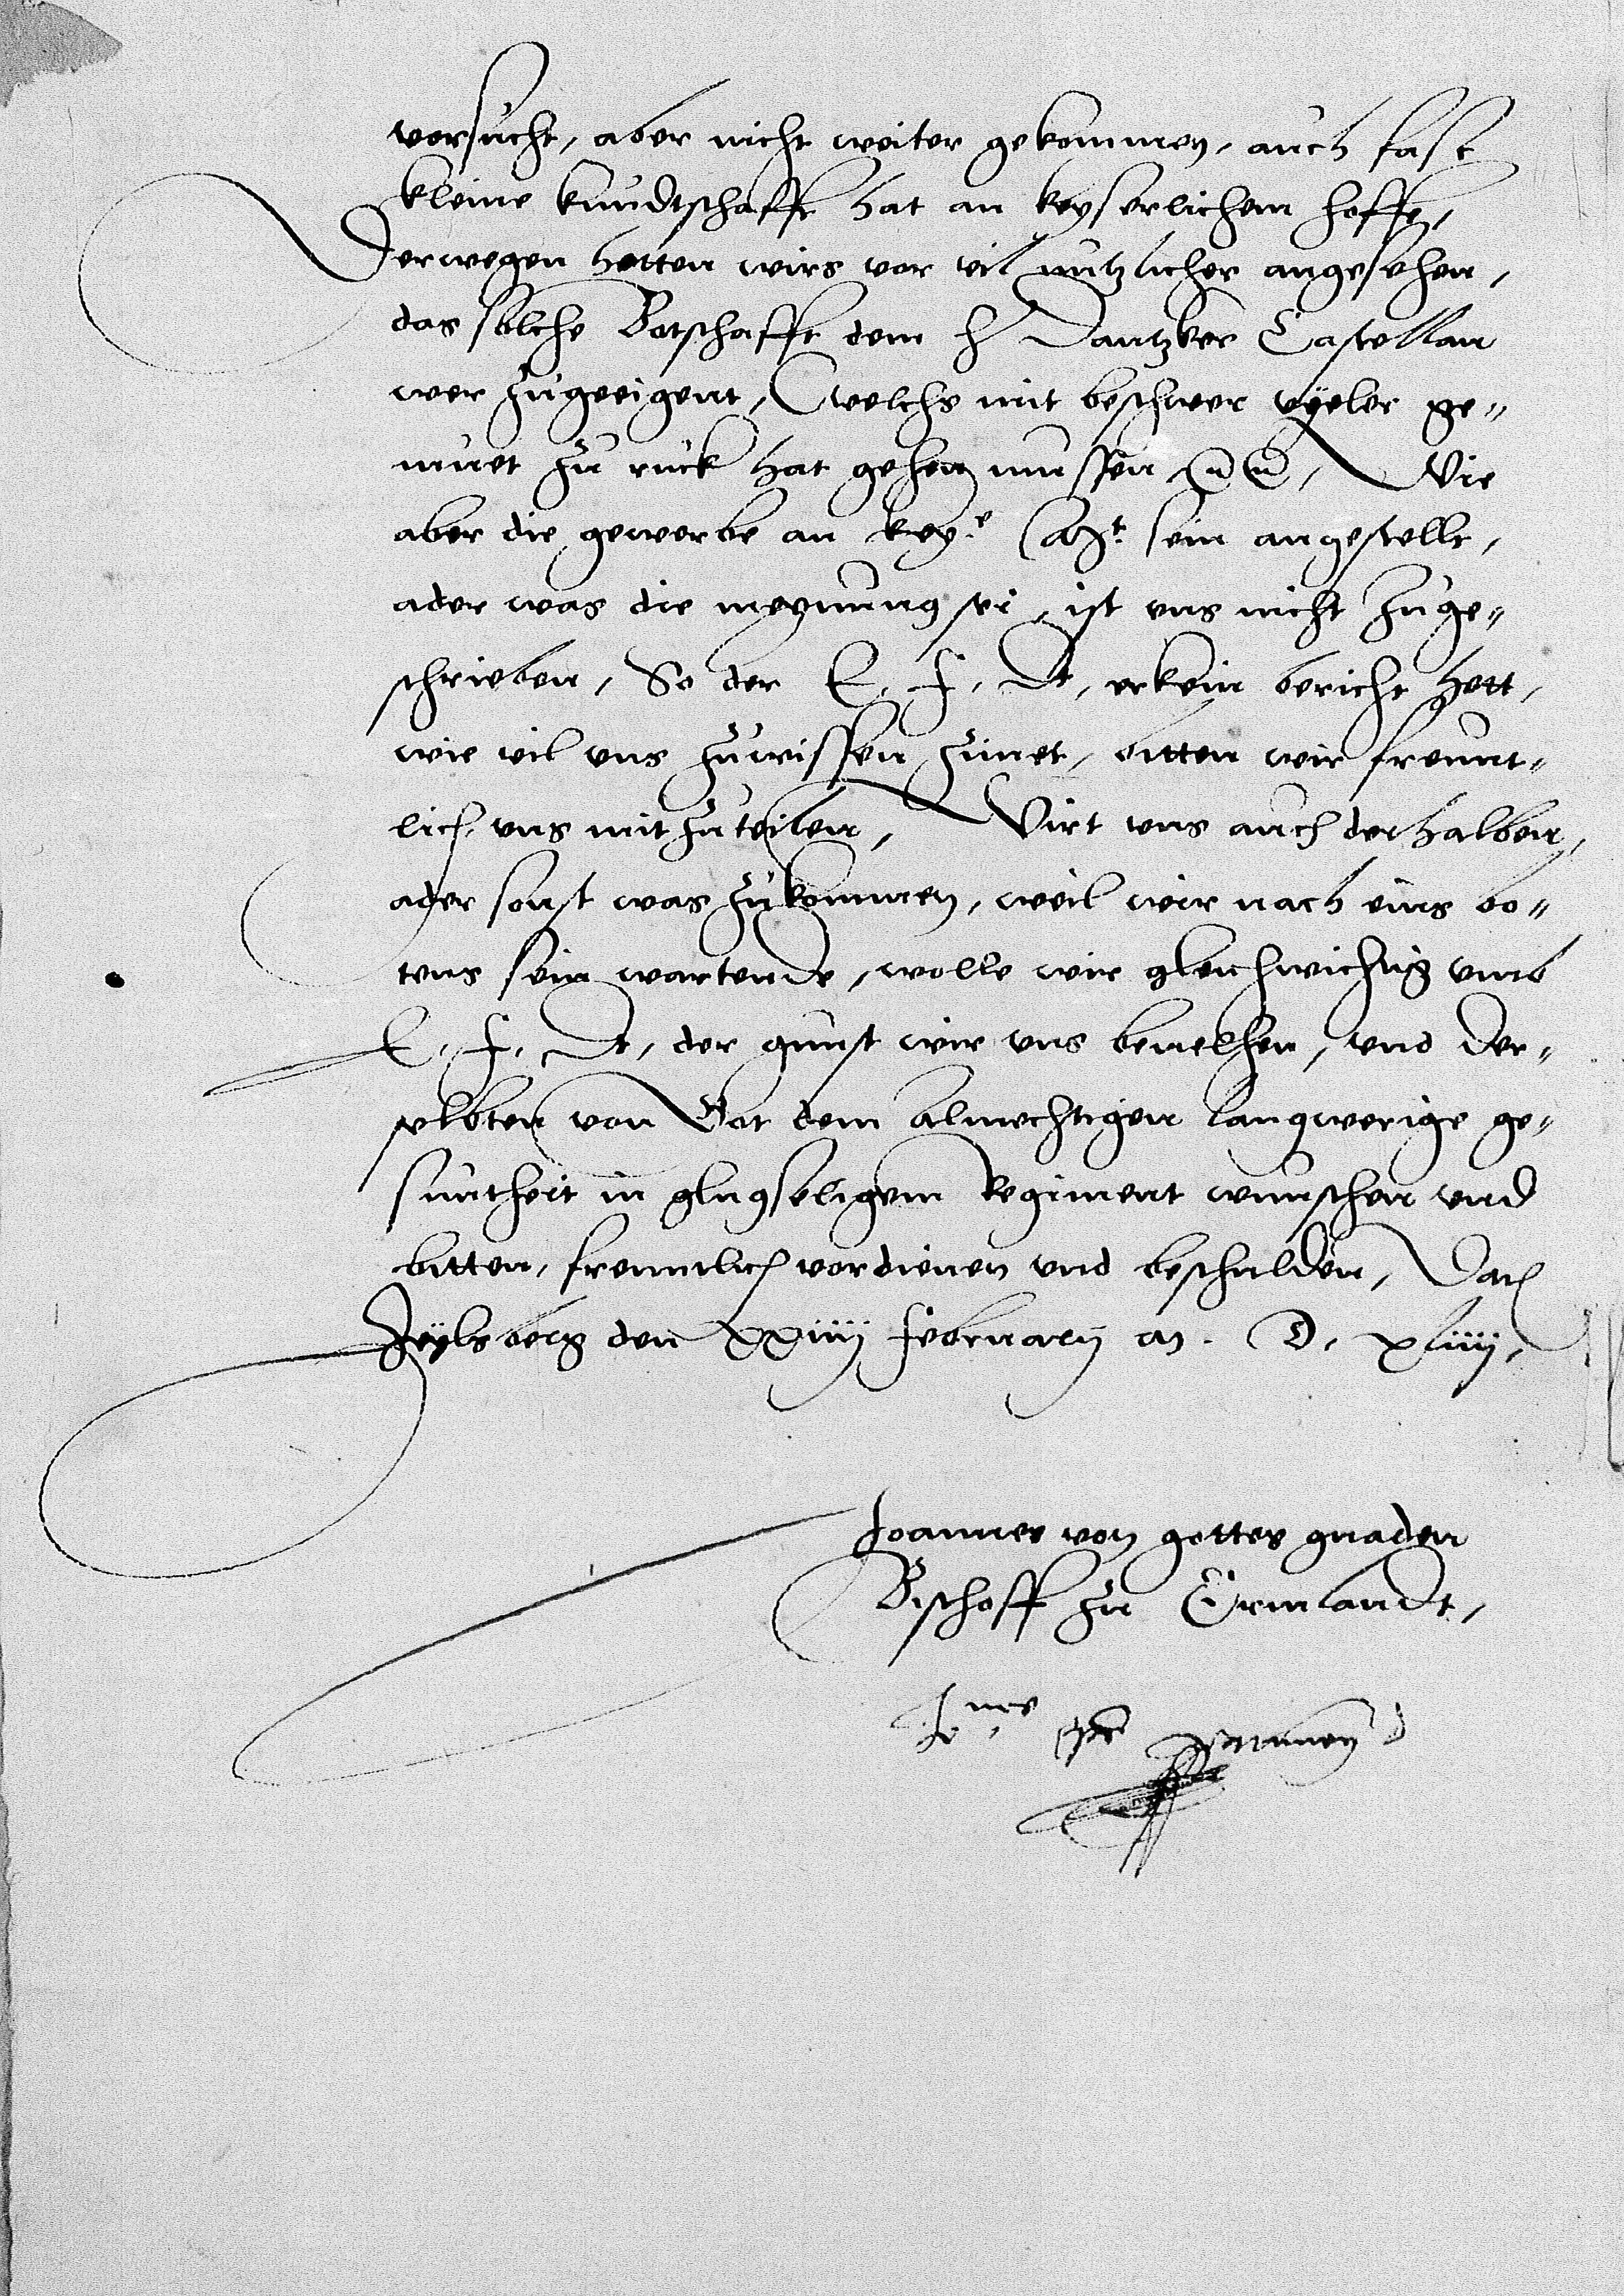 versucht, aber nicht weiter gekommen, auch fast
kleine kundtschafft hat an keyserlichem hoffe,
Derwegen hetten wirs vor vil nutzlicher angesehen,
das solche Botschafft dem h Dantzker Castellan
wer zugeeigent, welchs mit beschwer vyeler ge-
muet zu ruck hat gehen mussen Wie
aber die gewerbe an key.e Mt. sein angestelt,
ader was die meynung sei, ist uns nicht zuge-
schrieben, So der E. f. Dt, erkein bericht hett,
wie vil uns zuwissen zimet, bitten wir freunt-
lich uns mitzuteilen, Wirt uns auch derhalben,
ader sonst was zukommen, weil wir nach eins bo-
tens sein wartende, wolle wir gleichwichtig umb
E. f. Dt, der gunst wir uns bevelhen, und der-
selbten von Got dem almechtigen langwerige ge-
suntheit in glugseligem Regiment wunschen und
bitten, freuntlich vordienen und beschulden, Dat
Heylsberg den XXiiij february M. D. xliiij,
Joannes von gottes gnaden
Bischoff zu Ermlandt,